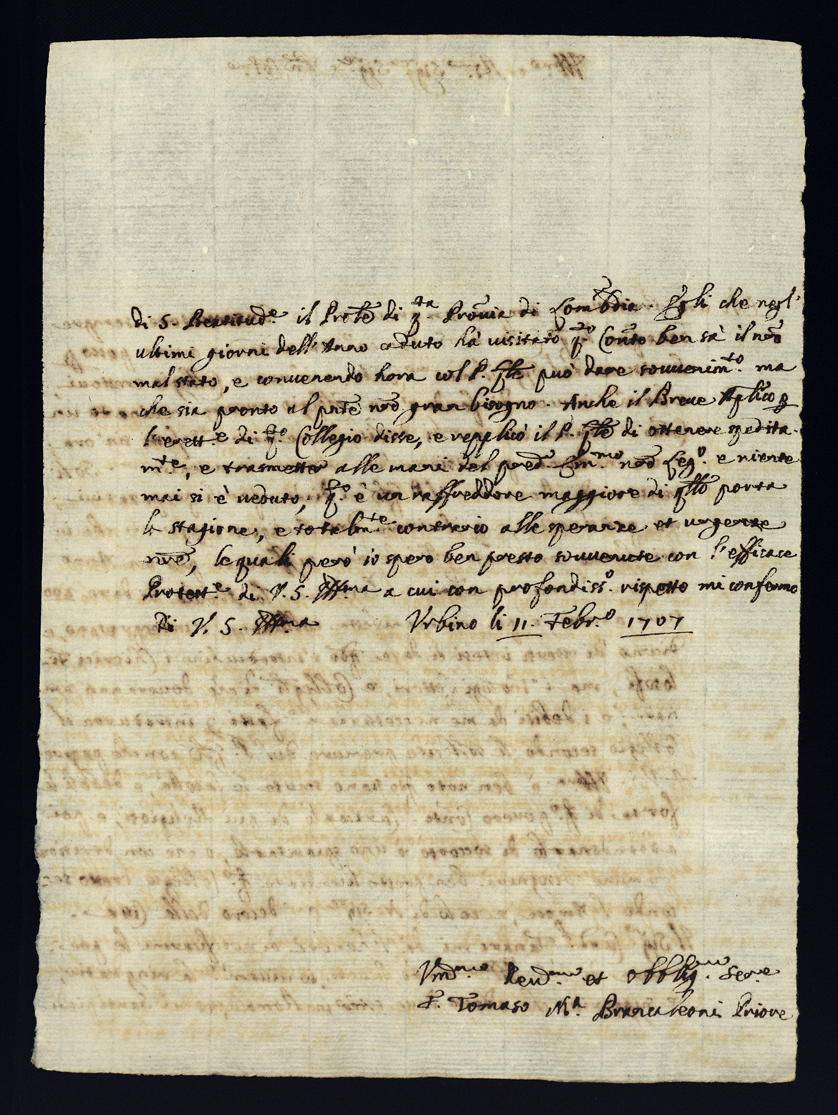 di S. Beatitud.e il Prõle di q.ta Prov̄ia di Lombdia. Egli che negl'
ultimi giorni dell'Anno caduto hà visitato q.o Conto ben sà il nr̄o
mal stato, e convenendo hora col P. può dare souvenim.to ma
che sia pronto al pn̄te nr̄o gran bisogno. Anche il Breve Ap̄lico
l'erett.e di q.o Collegio disse, e repplicò il P. di ottenere spedita-
m.te, e trasmetter alle mani del pred. Em.mo nr̄o Leg.o e niente
mai si è veduto, q.o è un raffreddore maggiore di qllo porta
la stagione, e totalm.te contrario alle speranze et urgenze
nr̄e, le quali però io spero ben presto souvenute con l'efficace
Protett.e di V. S. Ill̄ma a cui con profondiss.o rispetto mi confermo
Di V. S. Ill̄ma Urbino li 11. Febr.o 1707
Um.mo Deu.mo et obblig.mo Ser.e
F. Tomaso M.a Brancaleoni Priore